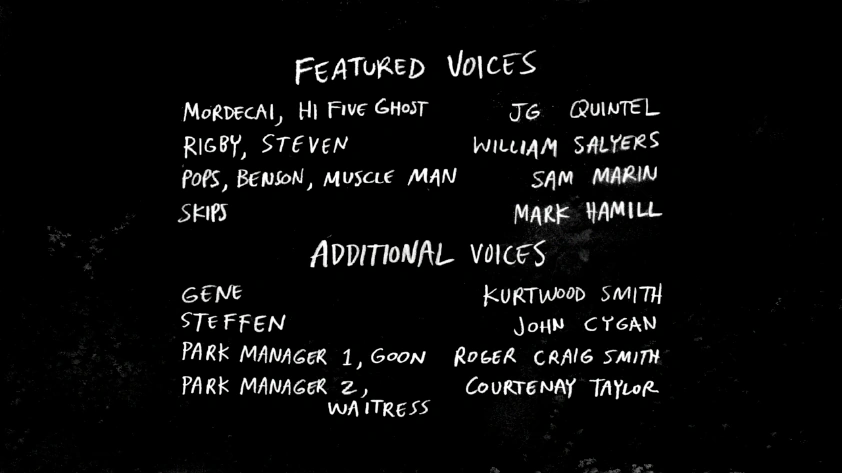 FEATURED VOICES
MORDECAI, HI FIVE GHOST JG QUINTEL
RIGBY, STEVEN WILLIAM SALYERS
POPS, BENSON, MUSCLE MAN SAM MARIN
SKIPS MARK HAMILL
ADDITIONAL VOICES
GENE KURTWOOD SMITH
STEFFEN JOHN CYGAN
PARK MANAGER 1, GOON ROGER CRAIG SMITH
PARK MANAGER 2, COURTENAY TAYLOR
WAITRESS